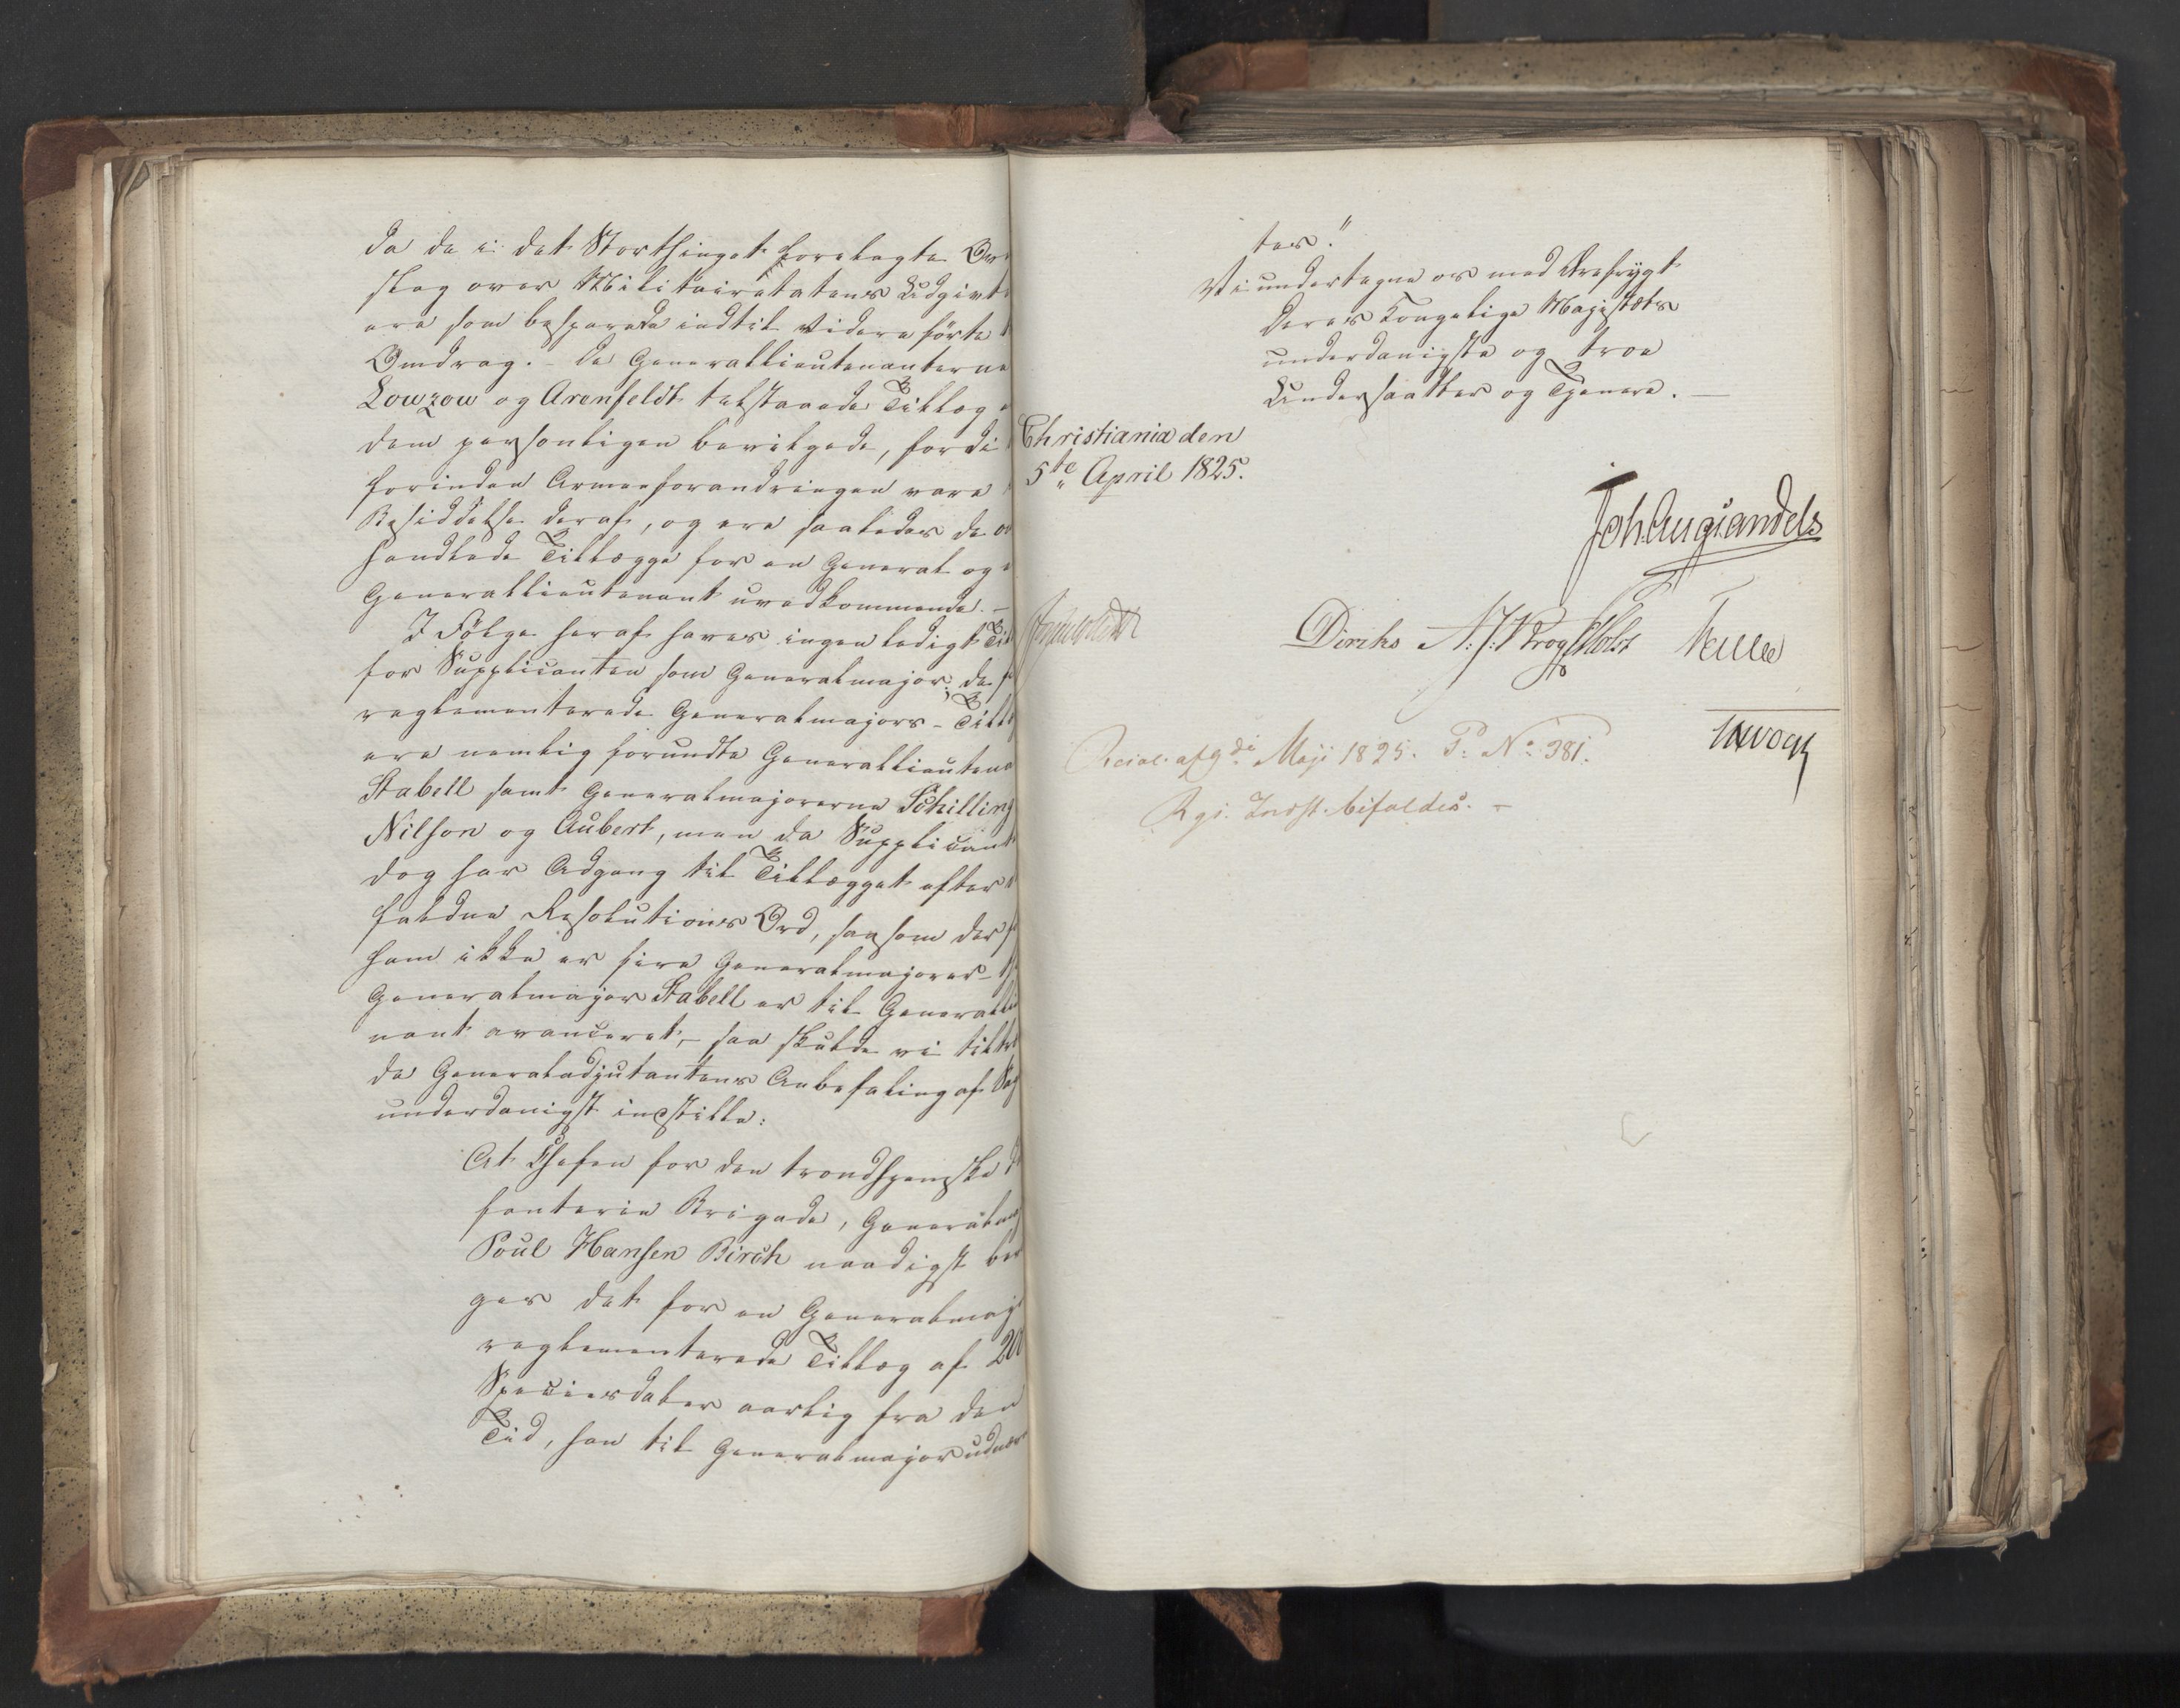 da de i det Storthinget forelagte Over
slag over Militairetatens Udgivt
ere som besparede indtil videre förte
Omdrag. – De Generallieutenanterne
Lowzow og Arenfeldt tilstaaede Tillæg
dem personligen bevilgede, fordi
forinden Armeeforandringen vare
Besiddelse deraf, og ere saaledes de
handlede Tillægge for en General og
Generallieutenant uvedkommende. –
I Fölge heraf haves ingen ledigt Til
for Supplicanten som Generalmajor; de
reglementerede Generalmajors-Till
ere nemlig forundte Generallieuten
Stabell samt Generalmajorerne Schilling
Nilson og Aubert, men da Supplicant
dog har Adgang til Tillægget efter
faldne Resolutions Ord, saasom der
ham ikke er fire Generalmajorer –
Generalmajor Stabell er til Generallie
nant avanceret, – saa skulde vi tiltræ
de Generaladjutantens Anbefaling af
underdanigst indstille:
At Chefen for den trondhjemske
fanterie Brigade, Generalma
Poul Hansen Birch naadigst be
ges det for en Generalmaj
reglementerede Tillæg af 200
Speciesdaler aarlig fra den
Tid, han til Generalmajor udnæv
tes."
Vi undertegne os med Ærefrygt
Deres Kongelige Majestæts
underdanigste og troe
Undersaatter og Tjenere. –
Christiania den
5te April 1825.
Joh Aug Sandels
Diriks N:J: Krog PHolst
af 9di Maji 1825. P: No 381.
Rgs. Indst. bifaldes. –